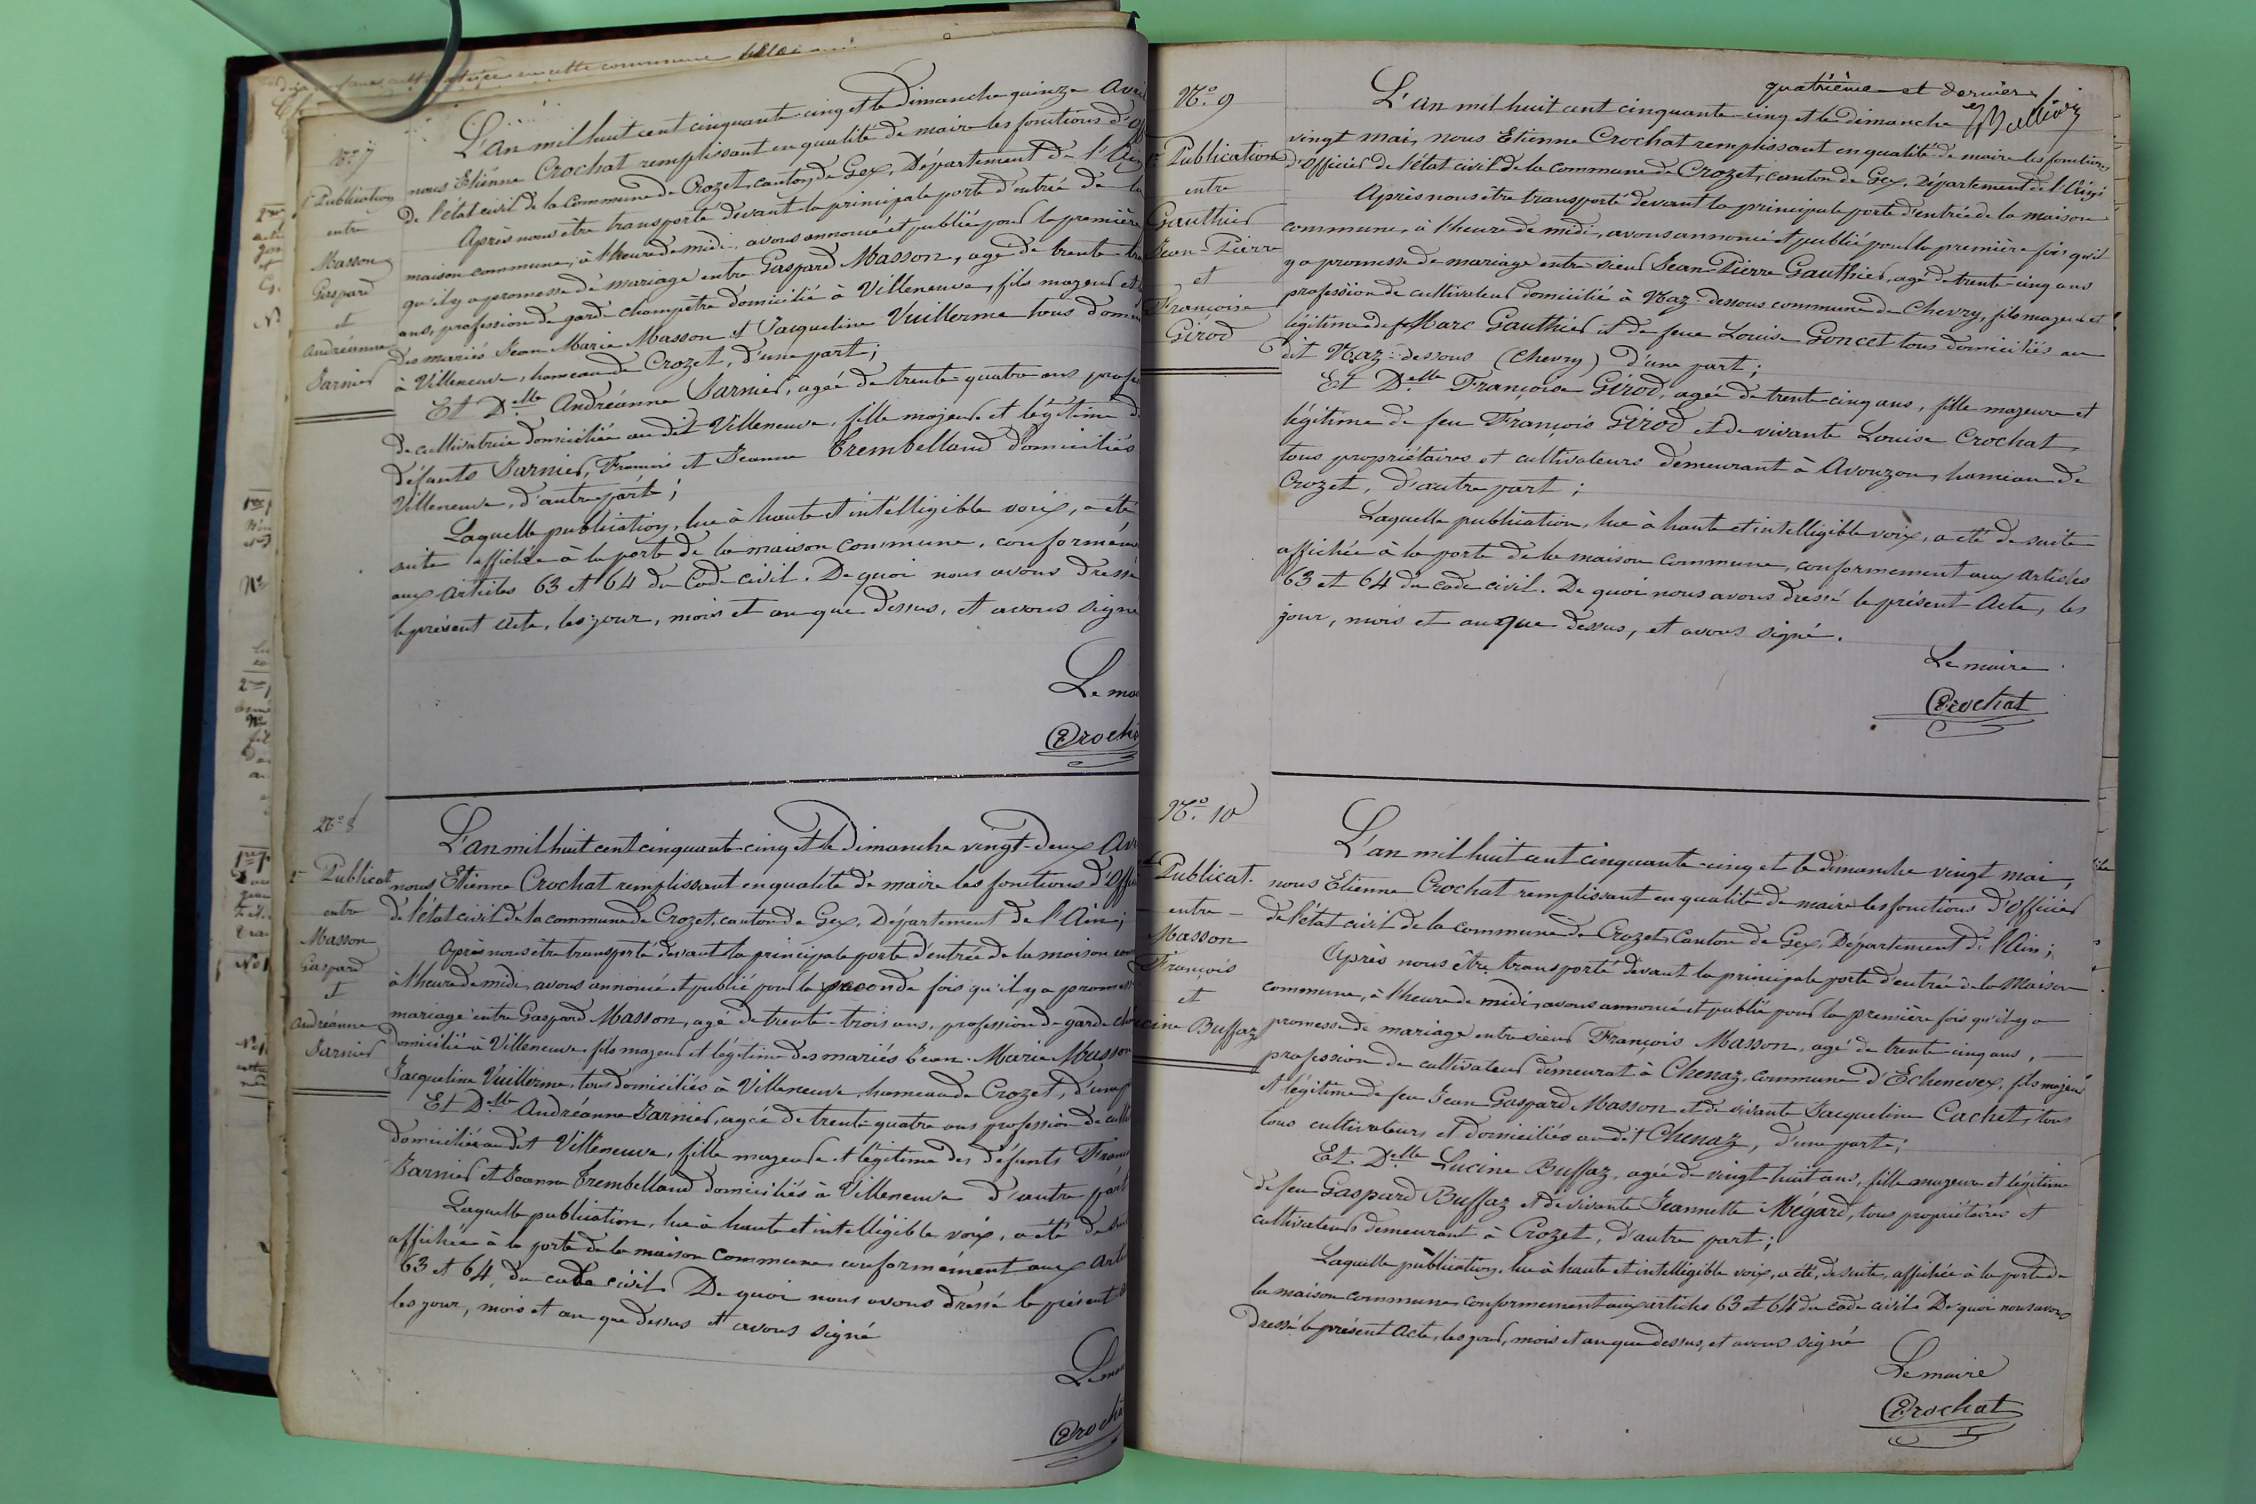 N.o 7
1.re Publication
entre
Masson
Gaspard
et
Andréanne
Jarnier
L'An mil huit cent cinquante cinq et le Dimanche quinze Avril
nous Etiénne Crochat remplissant en qualité de maire les fonctions d'Off
de l'état civil de la Commune de Crozet, canton de Gex, Département de l'Ain
Après nous être transporté devant la principale porte d'entrée de la
maison commune, à l'heure de midi, avons annoncé et publié pour la première
qu'il y a promesse de mariage entre Gaspard Masson, agé de trente tr
ans, profession de garde-champêtre domicilié à Villeneuve, fils majeur et
des mariés Jean Marie Masson et Jacqueline Vuillerme tous dom
à Villeneuve, hameau de Crozet, d'une part ;
Et D.elle Andréanne Jarnier, agée de trente-quatre ans profes
de cultivatrice domiciliée au dit Villeneuve, fille majeure et légitime d
défunts Jarnier, François et Jeanne Trembelland domiciliés
Villeneuve, d'autre part ;
Laquelle publication, lue à haute et intelligible voix, a été
suite affichée à la porte de la maison commune, conformém
aux articles 63 et 64 du Code civil. De quoi nous avons dressé
le présent Acte, les jour, mois et an que dessus, et avons signé
Le ma
Crocha
N.o 8
2.e Publicat
entre
Masson
Gaspard
et
Andréanne
Jarnier
L'an mil huit cent cinquante-cinq et le Dimanche vingt-deux Avr
nous Etienne Crochat remplissant en qualité de maire les fonctions d'Offi
de l'état civil de la commune de Crozet, canton de Gex, Département de l'Ain ;
Après nous être transporté devant la principale porte d'entrée de la maison com
à l'heure de midi, avons annoncé et publié pour la seconde fois qu'il y a promes
mariage entre Gaspard Masson, agé de trente-trois ans, profession de garde-ch
domicilié à Villeneuve, fils majeur et légitime des mariés Jean-Marie Masson
Jacqueline Vuillerme, tous domiciliés à Villeneuve hameau de Crozet, d'une p
Et D.elle Andréanne Jarnier, agée de trente-quatre ans profession de culti
domiciliée au dit Villeneuve, fille majeure et légitime des défunts Franç
Jarnier et Jeanne Trembelland domiciliés à Villeneuve d'autre part
Laquelle publication, lue à haute et intelligible voix, a été de sui
affichée à la porte de la maison commune conformément aux Arti
63 et 64, du code civil. De quoi nous avons dressé le présent
les jour, mois et an que dessus et avons signé
Le ma
Crocha
quatrième et dernier
N.o 9
1.re Publication
entre
Gauthier
Jean-Pierre
et
Françoise
Girod
L'An mil huit cent cinquante-cinq et le dimanche
vingt mai, nous Etienne Crochat remplissant en qualité de maire les fonctions
d'Officier de l'état civil de la commune de Crozet, canton de Gex, Département de l'Ain ;
Après nous être transporté devant la principale porte d'entrée de la maison
commune, à l'heure de midi, avons annoncé et publié pour la première fois qu'il
y a promesse de mariage entre sieur Jean-Pierre Gauthier, agé de trente-cinq ans
profession de cultivateur domicilié à Naz-dessous commune de Chevry, fils majeur et
légitime de fs Marc Gauthier et de feue Louise Goncet tous domiciliés au
dit Naz-dessous (Chevry) d'une part ;
Et D.elle Françoise Girod, agée de trente-cinq ans, fille majeure et
légitime de feu François Girod et de vivante Louise Crochat
tous propriétaires et cultivateurs demeurant à Avouzon, hameau de
Crozet, d'autre part ;
Laquelle publication, lue à haute et intelligible voix, a été de suite
affichée à la porte de la maison commune, conformément aux Articles
63 et 64 du code civil. De quoi nous avons dressé le présent Acte, les
jour, mois et an que dessus, et avons signé.
Le maire
Crochat
N.o 10
Publicat.
entre
Masson
François
et
cine Buffaz
L'an mil huit cent cinquante-cinq et le dimanche vingt mai,
nous Etienne Crochat remplissant en qualité de maire les fonctions d'Officier
de l'état civil de la commune de Crozet, Canton de Gex, Département de l'Ain ;
Après nous être transporté devant la principale porte d'entrée de la Maison
commune, à l'heure de midi, avons annoncé et publié pour la première fois qu'il y a
promesse de mariage entre sieur François Masson, agé de trente-cinq ans,
profession de cultivateur demeurat à Chenaz, commune d'Echenevex, fils majeur
et légitime de feu Jean Gaspard Masson et de vivante Jacqueline Cachet, tous
tous cultivateurs et domiciliés au dit Chenaz, d'une part ;
Et D.elle Lucine Buffaz, agée de vingt huit ans, fille majeure et légitime
de feu Gaspard Buffaz et de vivante Jeannette Mégard, tous propriétaires et
cultivateurs demeurant à Crozet, d'autre part ;
Laquelle publication, lue à haute et intelligible voix, a été, de suite, affichée à la porte de
la maison commune conformément aux articles 63 et 64 du code civil. De quoi nous avons
dressé le présent Acte, les jour, mois et an que dessus, et avons signé
Le maire
Crochat